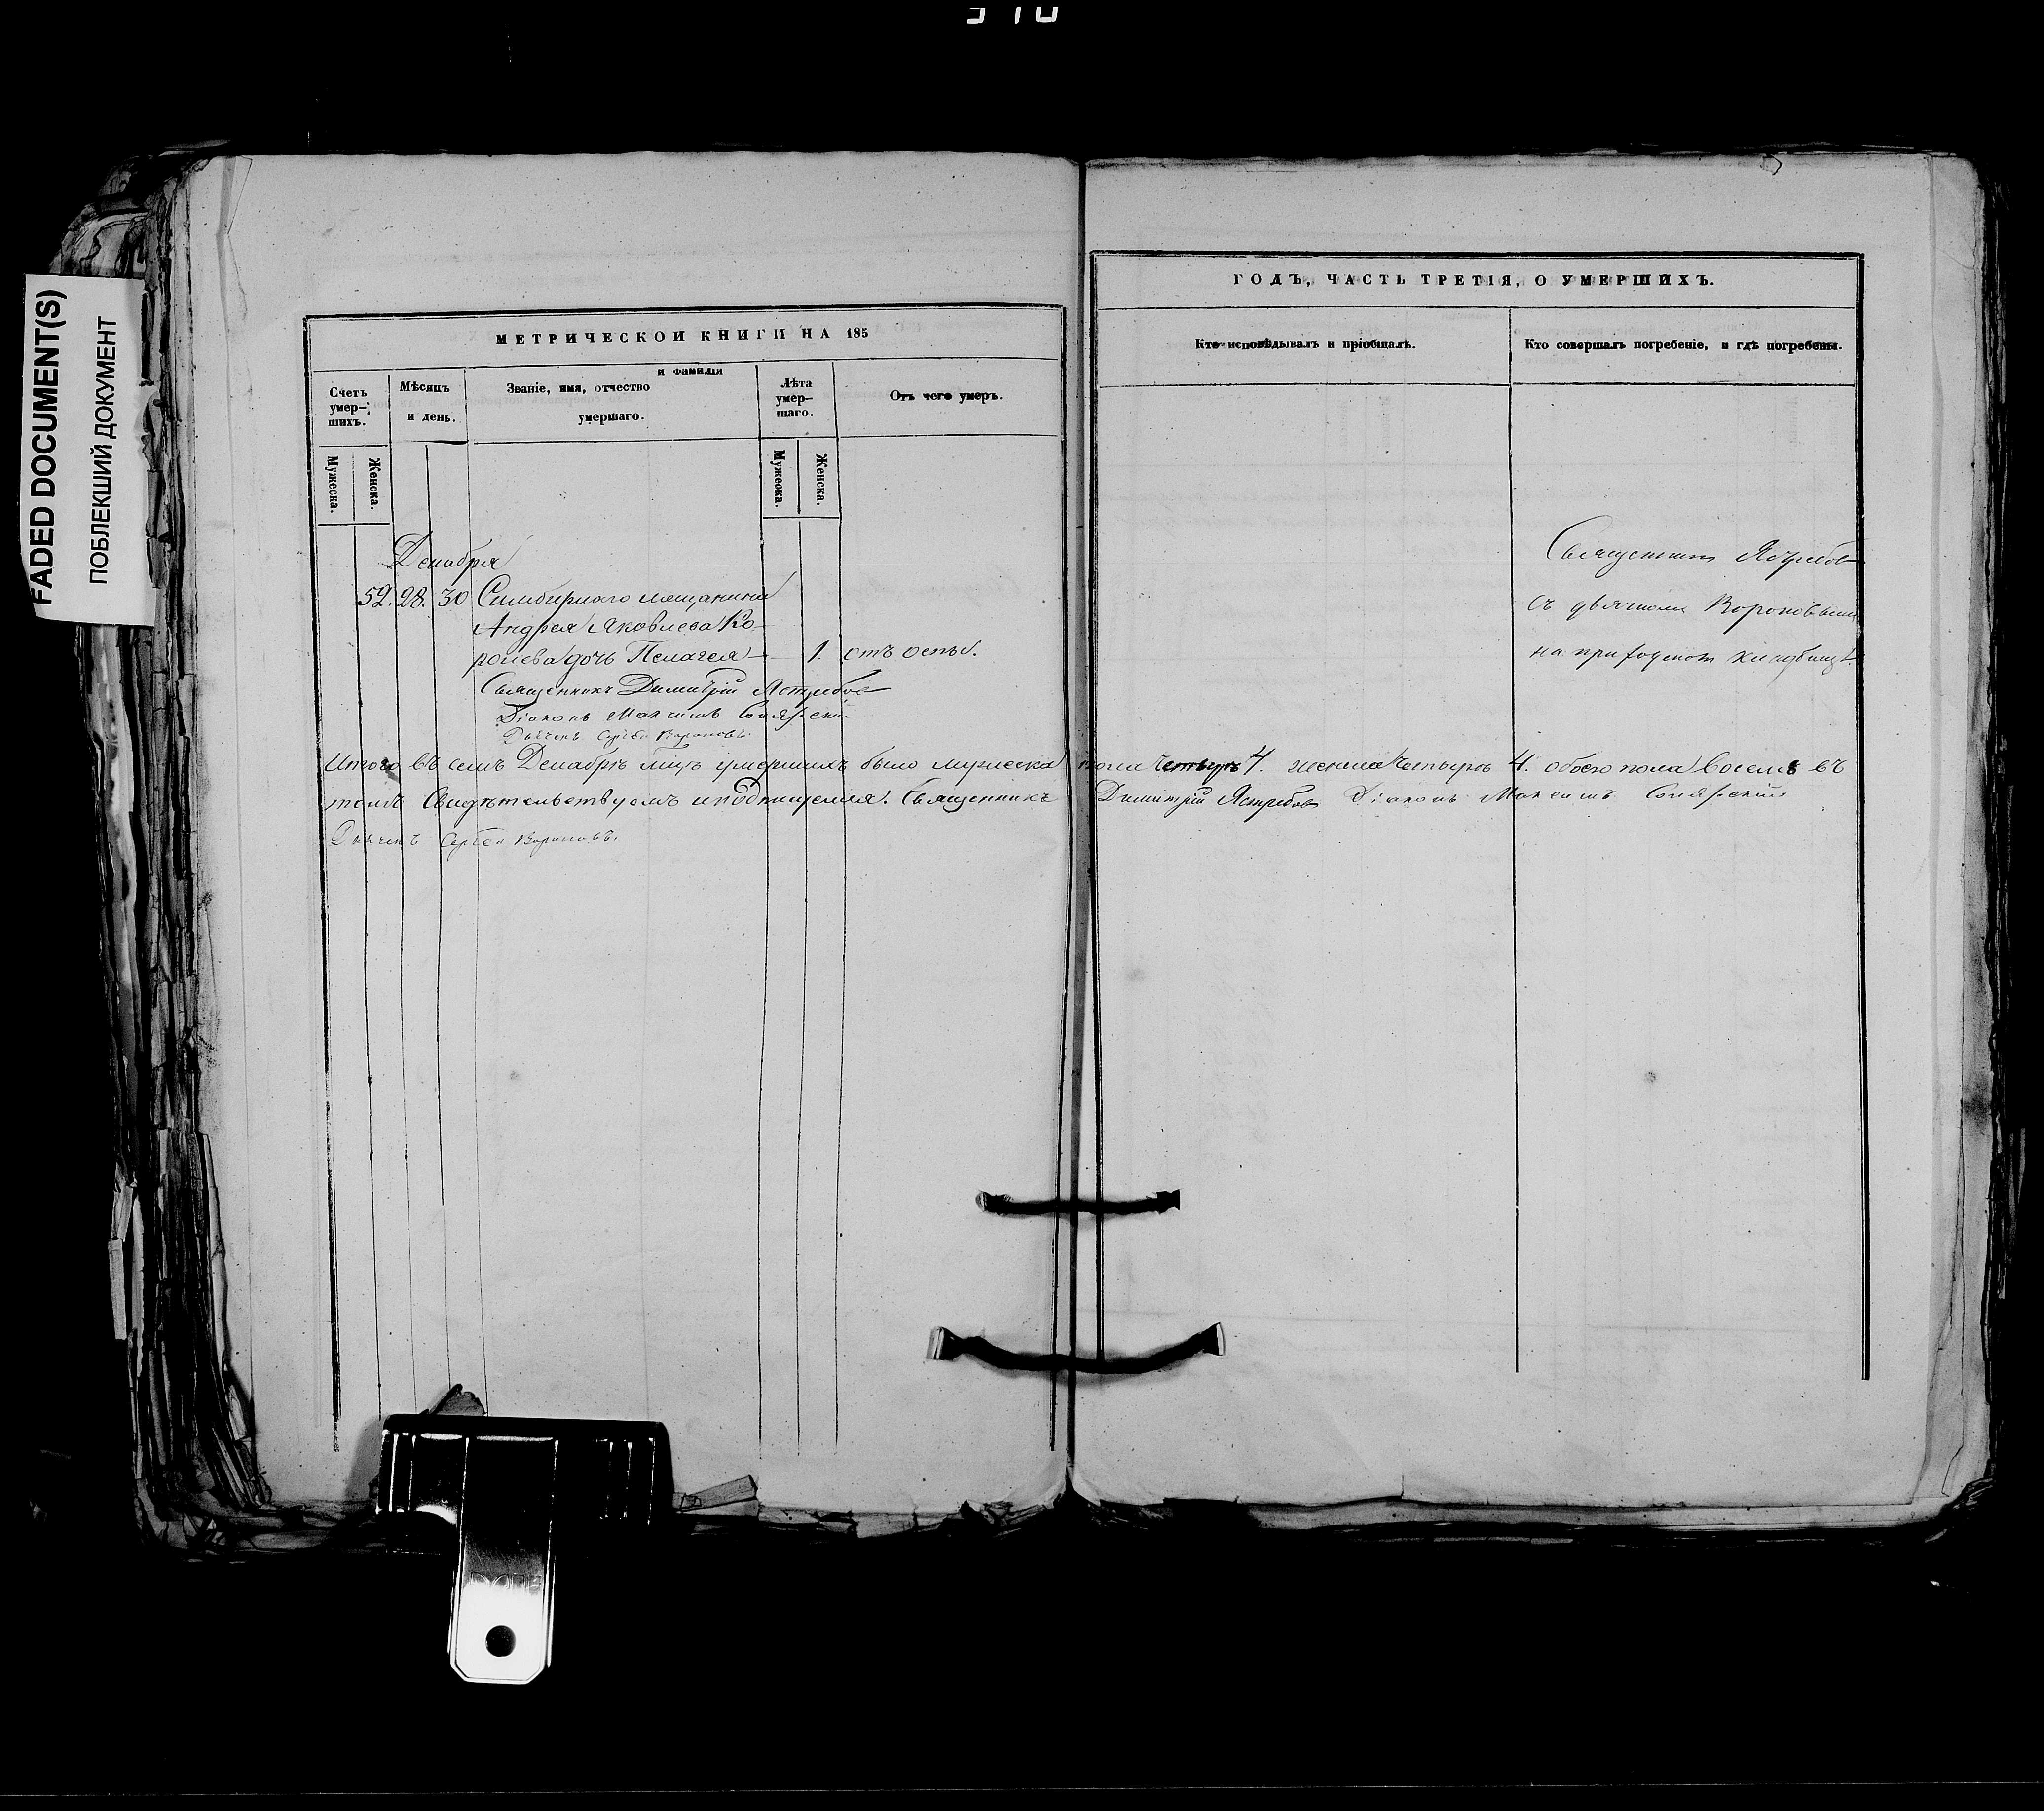 FADED DOCUMENT(S)
ПОБЛЕКШИЙ ДОКУМЕНТ
МЕТРИЧЕСКОЙ КНИГИ НА 185
Счетъ умер-шихъ.
Мужеска.
Женска.
Мѣсяцъ и день.
и фамилія
Званіе, имя, отчество
умершаго.
Лѣта умер-шаго.
Мужеска.
Женска.
Отъ чего умеръ.
Декабря
52. 28. 30 Симбирскаго мещанина
Андрея Яковлева Ко-
ролева дочь Пелагея 1. отъ оспы.
Священникъ Димитрій Ястребов
Діаконъ Максимъ
Дьячекъ Сергѣй Вороновъ.
Итого въ семъ Декабрѣ мцѣ умершихъ было мужеска
томъ Свидѣтельствуемъ и подписуемся. Священникъ
Дьячекъ Сергѣй Вороновъ.
ГОДЪ, ЧАСТЬ ТРЕТІЯ, О УМЕРШИХЪ.
Кто исповѣдывалъ и пріобщалъ.
Кто совершалъ погребеніе, и гдѣ погребены.
Священник Ястребов
съ дьячкомъ Вороновымъ
на приходском кладбищѣ.
пола Четыре 4. женска Четыре 4. обоего пола восемь въ
Димитрій Ястребов Діаконъ Максимъ